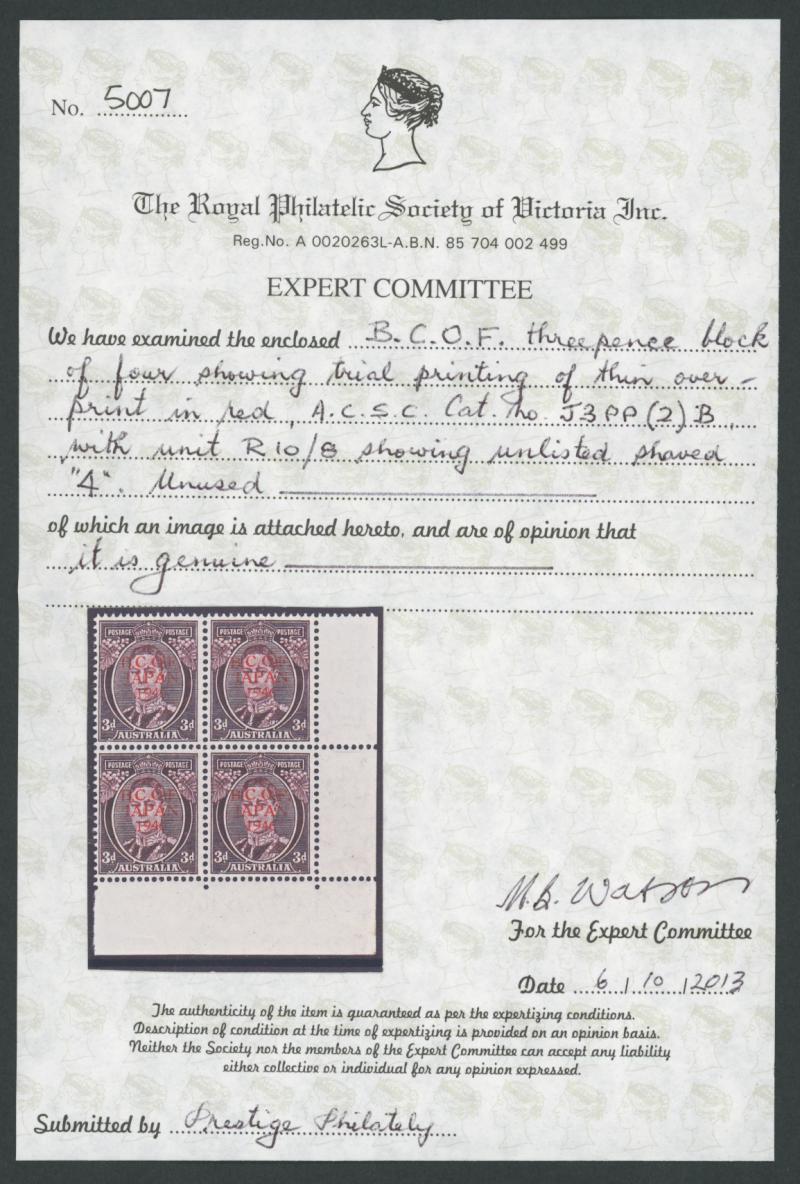 No. 5007
The Royal Philatelic Society of Victoria Inc.
Reg.No. A 0020263L-A.B.N. 85 704 002 499
EXPERT COMMITTEE
We have examined the enclosed B.C.O.F. threepence block
of four showing trial printing of thin over-
print in red, A.C.S.C. Cat. no J3PP(2)B,
with unit R10/8 showing unlisted shaved
"4". Unused
of which an image is attached hereto, and are of opinion that
it is genuine
POSTAGE POSTAGE POSTAGE POSTAGE
B.C.O.F. B.C.O.F.
JAPAN JAPAN
1946 1946
3d 3d 3d 3d
AUSTRALIA AUSTRALIA
POSTAGE POSTAGE POSTAGE POSTAGE
B.C.O.F. B.C.O.F.
JAPAN JAPAN
1946 1946
3d 3d 3d 3d
AUSTRALIA AUSTRALIA
M.B. Watson
For the Expert Committee
Date 6/10/2013
The authenticity of the item is guaranteed as per the expertizing conditions.
Description of condition at the time of expertizing is provided on an opinion basis.
Neither the Society nor the members of the Expert Committee can accept any liability
either collective or individual for any opinion expressed.
Submitted by Prestige Philately